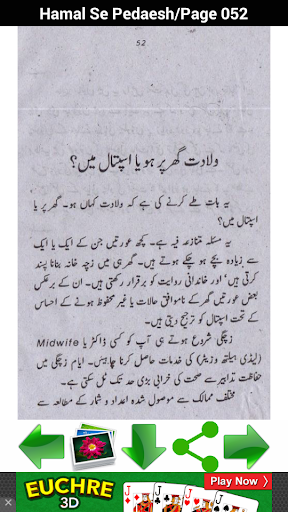 Hamal Se Pedaesh/Page 052
52
ولادت گھر پر ہو یا اسپتال میں؟
یہ بات طے کرنے کی ہے کہ ولادت کہاں ہو۔ گھر پر یا
اسپتال میں؟
یہ مسئلہ متنازعہ فیہ ہے۔ کچھ عورتیں جن کے ایک یا ایک
سے زیادہ بچے ہو چکے ہوتے ہیں۔ گھر ہی میں زچہ خانہ بنانا پسند
کرتی ہیں' اور خاندانی روایت کو برقرار رکھتی ہیں۔ ان کے برعکس
بعض عورتیں گھر کے ناموافق حالات یا غیر محفوظ ہونے کے احساس
کے تحت اسپتال کو ترجیح دیتی ہیں۔
زچگی شروع ہوتے ہی آپ کو کسی ڈاکٹر یا Midwife
(لیڈی ہیلتھ وزیٹر) کی خدمات حاصل کرنا چاہیں۔ ایام زچگی میں
حفاظت تدابیر سے صحت کی خرابی بڑی حد تک ٹل سکتی ہے۔
مختلف ممالک سے موصول شدہ اعداد و شمار کے مطالعہ سے
EUCHRE
3D
J
J
J
J
Play Now